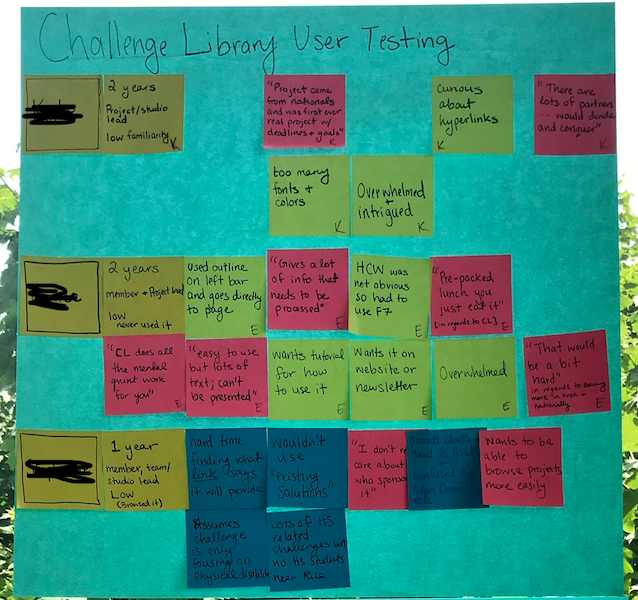 Challenge Library User Testing
2 years
Project/studio
lead
low familiarity
K
"Project came
from nationals
and was first ever
real project w/
deadlines & goals"
K
curious
about
hyperlinks
K
"There are
lots of partners
... would divide
and conquer"
K
too many
fonts +
colors
K
Overwhelmed
+
intrigued
K
2 years
member + Project lead
low
never used it
used outline
on left bar
and goes directly
to page
E
"Gives a lot
of info that
needs to be
processed"
E
HCW was
not obvious
so had to
use F7
E
"Pre-packed
lunch you
just eat it"
[in regards to CL]
E
"CL does all
the mental
grunt work
for you"
E
"easy to use
but lots of
text; can't
be presented"
E
wants tutorial
for how
to use it
E
Wants it on
website or
newsletter
E
Overwhelmed
E
"That would
be a bit
hard"
in regards to
more in area +
nationally
E
1 year
member, team/
studio lead
Low
(Browsed it)
hard time
finding what
link says
it will provide
wouldn't
use
"existing
solutions"
"I don't
care about
who sponsor
it"
Overall
hard to find
+
confused by
Open Doors
role
Wants to be
able to
browse projects
more easily
Assumes
challenge
is only
focusing on
physical
Lots of HS
related
challenges but
no HS students
near Rice